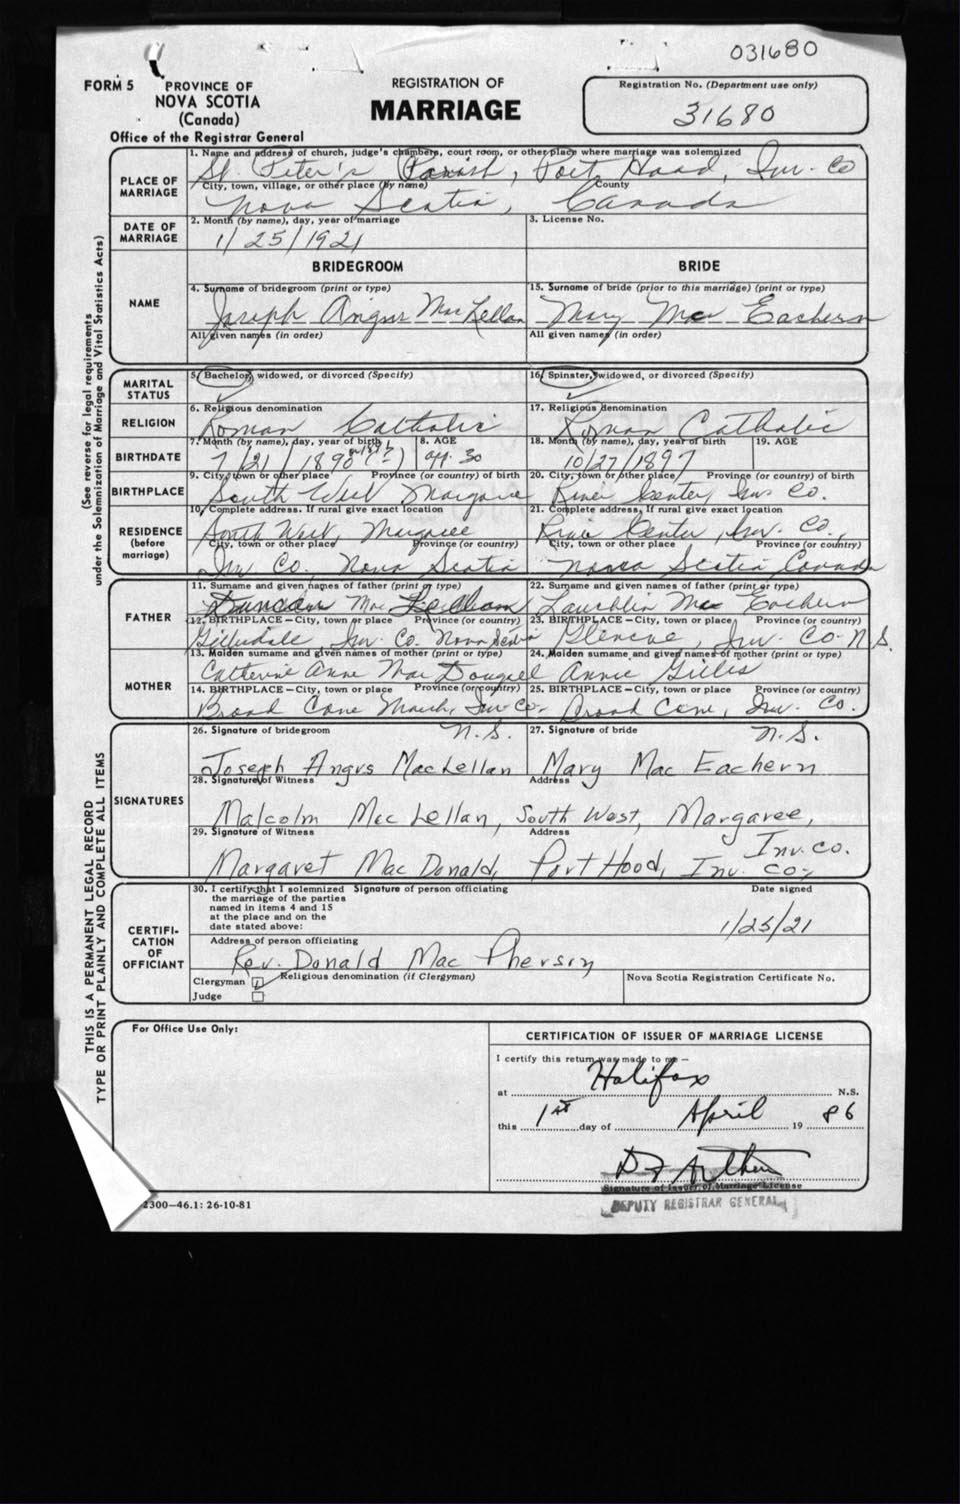 031680
FORM 5 PROVINCE OF
NOVA SCOTIA
(Canada)
Office of the Registrar General
REGISTRATION OF
MARRIAGE
Registration No. (Department use only)
31680
(See reverse for legal requirements
under the Solemnization of Marriage and Vital Statistics Acts)
THIS IS A PERMANENT LEGAL RECORD
TYPE OR PRINT PLAINLY AND COMPLETE ALL ITEMS
PLACE OF
MARRIAGE
1. Name and address of church, judge's chambers, court room, or other place where marriage was solemnized
St. Peter's Parish, Port Hood, Inv. Co
City, town, village, or other place (by name) County
Nova Scotia, Canada
DATE OF
MARRIAGE
2. Month (by name), day, year of marriage
1/25/1921
3. License No.
NAME
BRIDEGROOM
BRIDE
4. Surname of bridegroom (print or type)
Joseph Angus MacLellan
All given names (in order)
15. Surname of bride (prior to this marriage) (print or type)
Mary Mac Eachern
All given names (in order)
MARITAL
STATUS
5. Bachelor, widowed, or divorced (Specify)
16. Spinster, widowed, or divorced (Specify)
RELIGION
6. Religious denomination
Roman Catholic
17. Religious denomination
Roman Catholic
BIRTHDATE
7. Month (by name), day, year of birth
7/21/1890 (?)
8. AGE
app. 30
18. Month (by name), day, year of birth
10/27/1897
19. AGE
BIRTHPLACE
9. City, town or other place Province (or country) of birth
South West Margaree
20. City, town or other place Province (or country) of birth
River Center, Inv. Co.
RESIDENCE
(before
marriage)
10. Complete address. If rural give exact location
South West, Margaree
City, town or other place Province (or country)
Inv Co., Nova Scotia
21. Complete address, If rural give exact location
River Center, Inv. Co.,
City, town or other place Province (or country)
Nova Scotia Canada
FATHER
11. Surname and given names of father (print or type)
Duncan Mac Lellan
12. BIRTHPLACE – City, town or place Province (or country)
Gillisdale Inv. Co. Nova Scotia
22. Surname and given names of father (print or type)
Lauchlin Mac Eachern
23. BIRTHPLACE – City, town or place Province (or country)
Glencoe, Inv. Co. N.S.
MOTHER
13. Maiden surname and given names of mother (print or type)
Catherine Anne Mac Dougall
14. BIRTHPLACE – City, town or place Province (or country)
Broad Cove Marsh, Inv Co.
N.S.
24. Maiden surname and given names of mother (print or type)
Annie Gillis
25. BIRTHPLACE – City, town or place Province (or country)
Broad Cove, Inv. Co.
N.S.
SIGNATURES
26. Signature of bridegroom
Joseph Angus MacLellan
27. Signature of bride
Mary Mac Eachern
28. Signature of Witness Address
Malcolm MacLellan, South West, Margaree,
Inv. Co.
29. Signature of Witness Address
Margaret Mac Donald, Port Hood, Inv. Co.
CERTIFI-
CATION
OF
OFFICIANT
30. I certify that I solemnized
the marriage of the parties
named in items 4 and 15
at the place and on the
date stated above:
Signature of person officiating
Date signed
1/25/21
Address of person officiating
Rev. Donald Mac Pherson
Clergyman
Judge
Religious denomination (if Clergyman)
Nova Scotia Registration Certificate No.
For Office Use Only:
CERTIFICATION OF ISSUER OF MARRIAGE LICENSE
I certify this return was made to me —
at Halifax N.S.
this 1st day of April 19 86
Signature of Issuer of Marriage License
DEPUTY REGISTRAR GENERAL
2300–46.1: 26-10-81